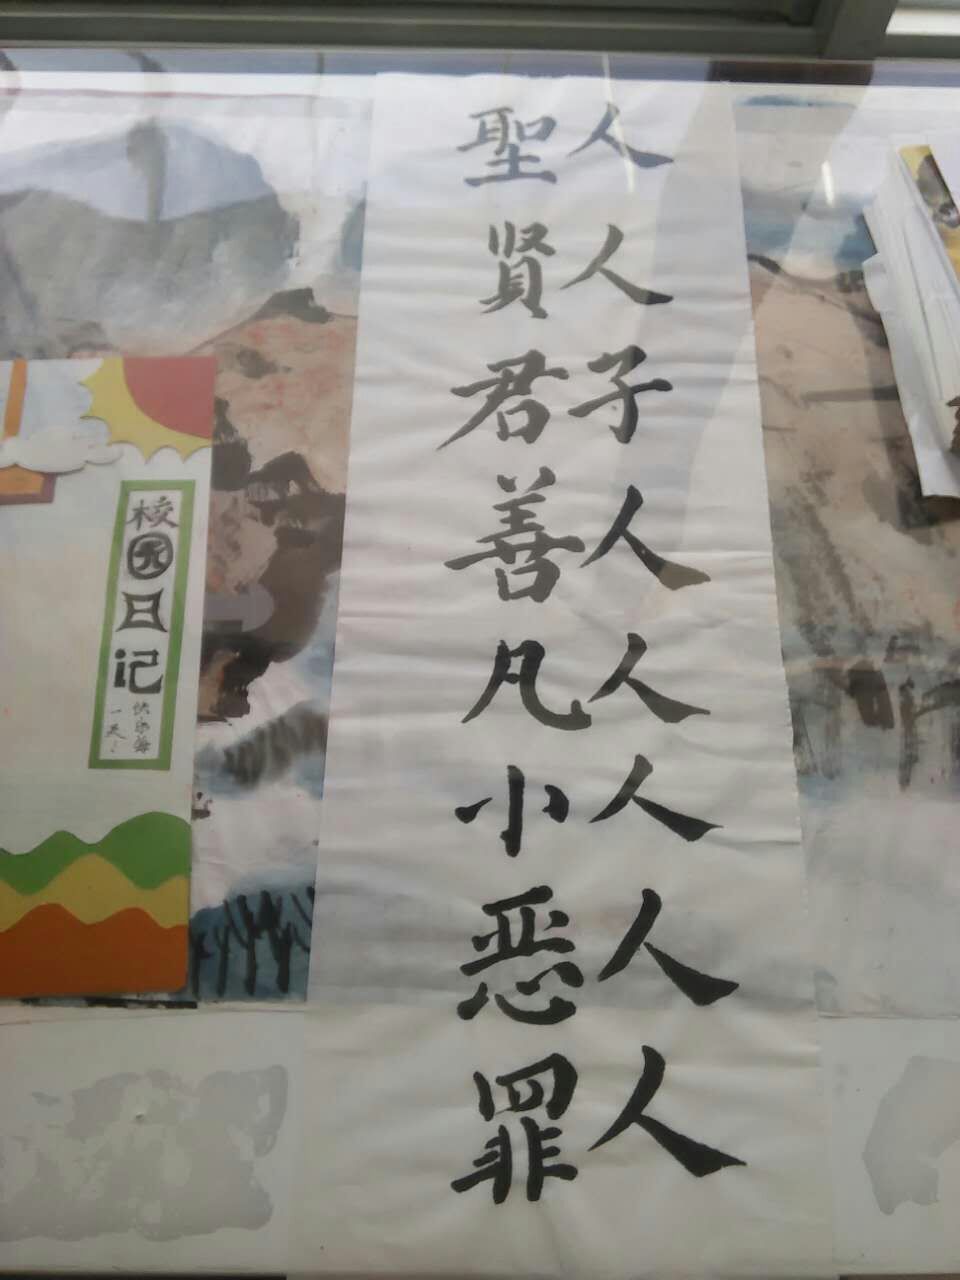 聖人
賢人
君子
善人
凡人
小人
恶人
罪人
校园日记
快乐每
一天！